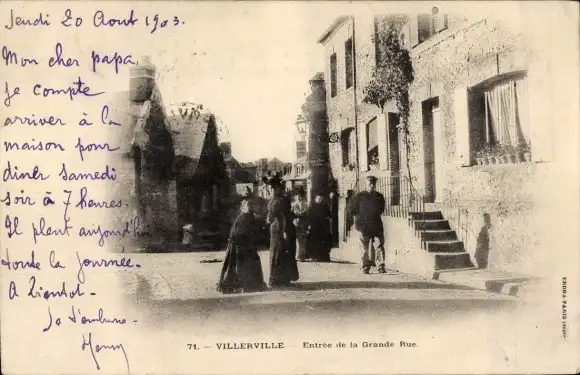 Jeudi 20 Aout 1903.
Mon cher papa
Je compte
arriver à la
maison pour
diner samedi
soir à 7 heures.
Il pleut aujourd'hui
toute la journée.
A bientôt.
Je t'embrasse
Henry
71. - VILLERVILLE. - Entrée de la Grande Rue.